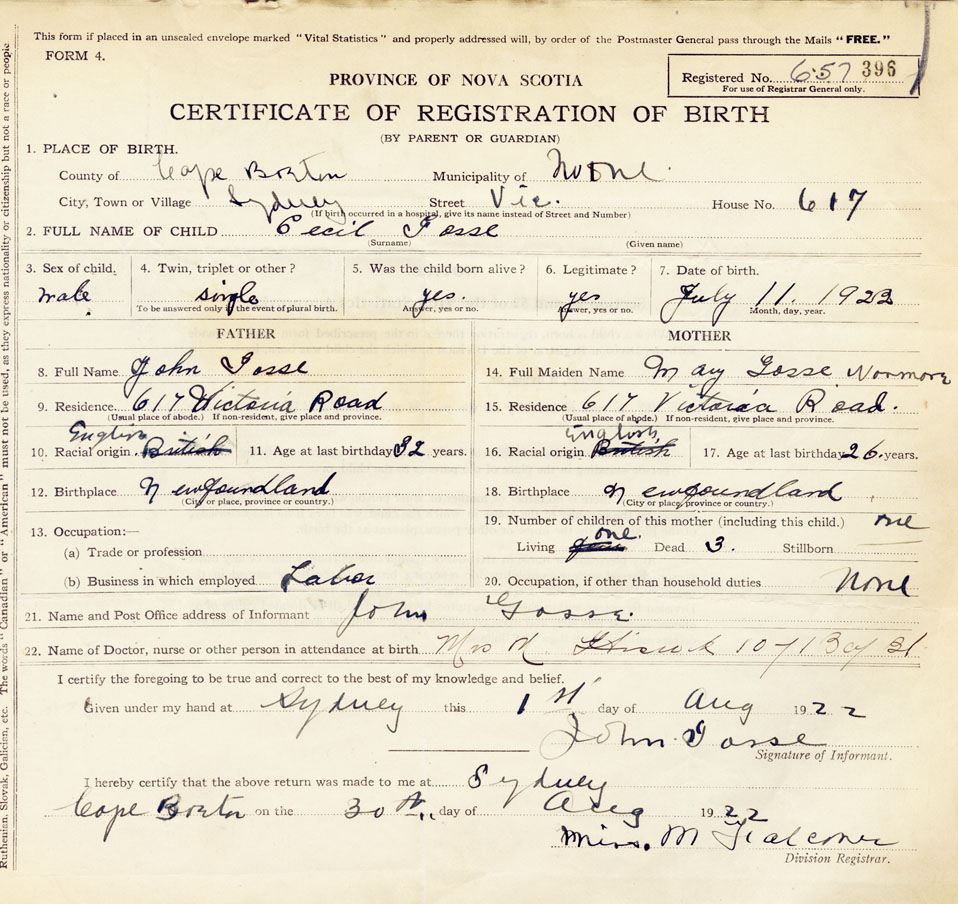 This form if placed in an unsealed envelope marked "Vital Statistics" and properly addressed will, by order of the Postmaster General pass through the Mails "FREE."
FORM 4.
PROVINCE OF NOVA SCOTIA
Registered No. 657 396
For use of Registrar General only.
CERTIFICATE OF REGISTRATION OF BIRTH
(BY PARENT OR GUARDIAN)
1. PLACE OF BIRTH.
County of Cape Breton Municipality of
City, Town or Village Sydney Street Vic. House No. 617
(If birth occurred in a hospital, give its name instead of Street and Number)
2. FULL NAME OF CHILD Cecil Gosse
(Surname) (Given name)
3. Sex of child. 4. Twin, triplet or other? 5. Was the child born alive? 6. Legitimate? 7. Date of birth.
male single yes. yes July 11. 1922
To be answered only in the event of plural birth. Answer, yes or no. Answer, yes or no. Month, day, year.
FATHER MOTHER
8. Full Name John Gosse 14. Full Maiden Name Mary Gosse Normore
9. Residence 617 Victoria Road 15. Residence 617 Victoria Road.
(Usual place of abode.) If non-resident, give place and province. (Usual place of abode.) If non-resident, give place and province.
English English
10. Racial origin. British 11. Age at last birthday 32 years. 16. Racial origin British 17. Age at last birthday 26. years.
12. Birthplace Newfoundland 18. Birthplace Newfoundland
(City or place, province or country.) (City or place, province or country.)
13. Occupation:— 19. Number of children of this mother (including this child.) one
(a) Trade or profession Living one. Dead 3. Stillborn
(b) Business in which employed Labor 20. Occupation, if other than household duties None
21. Name and Post Office address of Informant John Gosse.
22. Name of Doctor, nurse or other person in attendance at birth Mrs M
I certify the foregoing to be true and correct to the best of my knowledge and belief.
Given under my hand at Sydney this 1st day of Aug 1922
John Gosse
Signature of Informant.
I hereby certify that the above return was made to me at Sydney
Cape Breton on the 30th day of Aug 1922
Miss. M Falconer
Division Registrar.
Ruthenian, Slovak, Galician, etc. The words "Canadian" or "American" must not be used, as they express nationality or citizenship but not a race or people